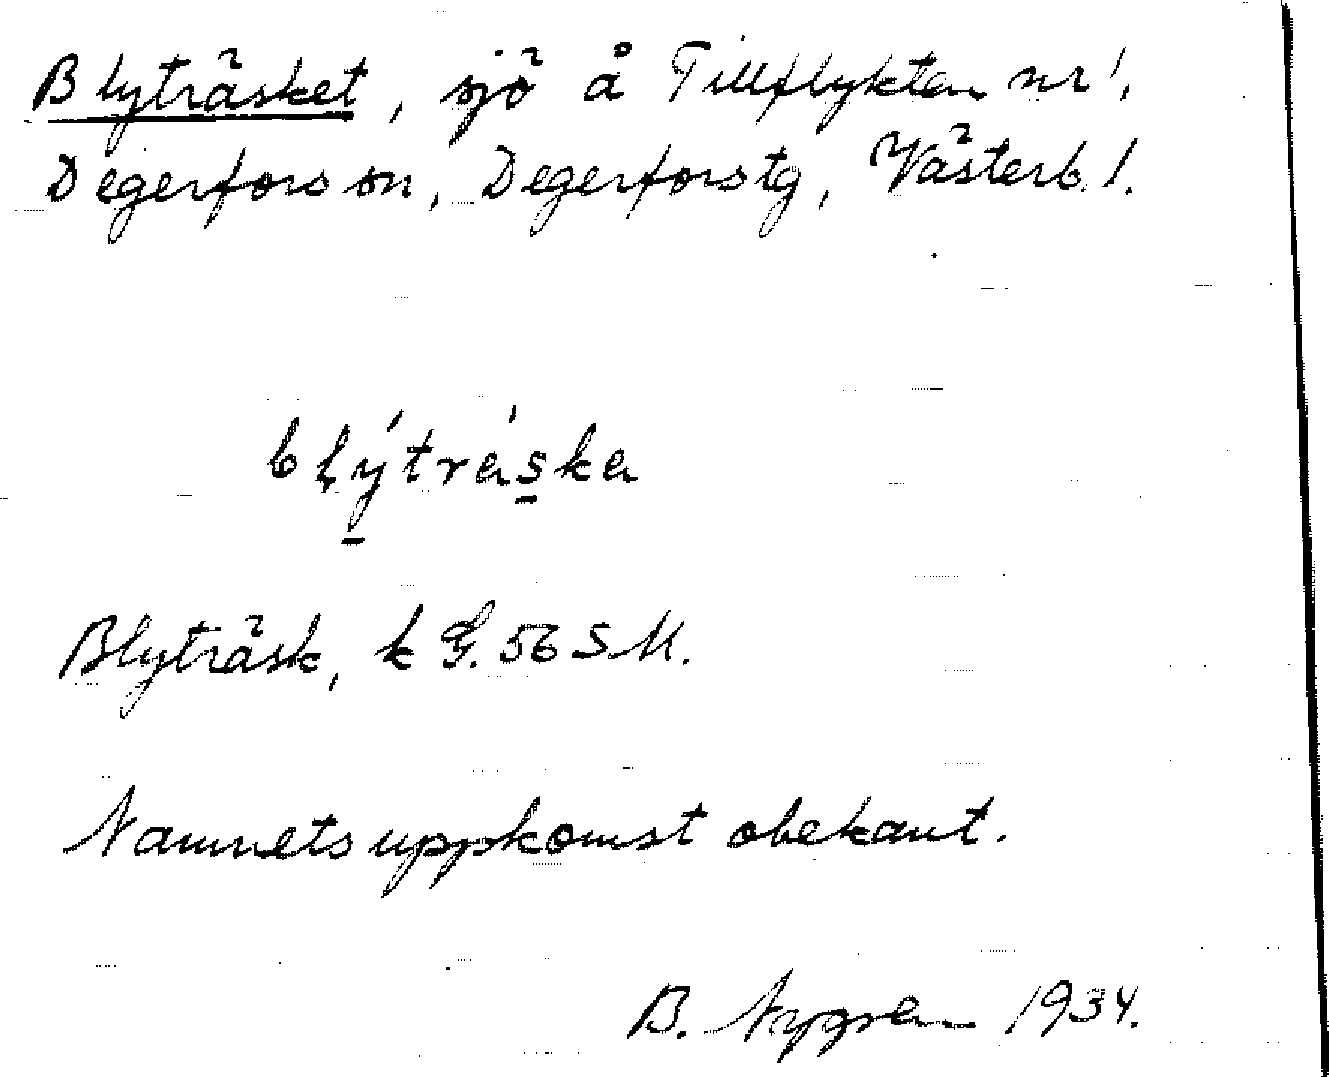 Blyträsket, sjö å Tillflykten nr 1,
Degerfors sn, Degerfors tg, Västerb. l.
blýtráska
Blyträsk, k G. 56 S M.
Namnets uppkomst obekant.
B. Nygren 1934.